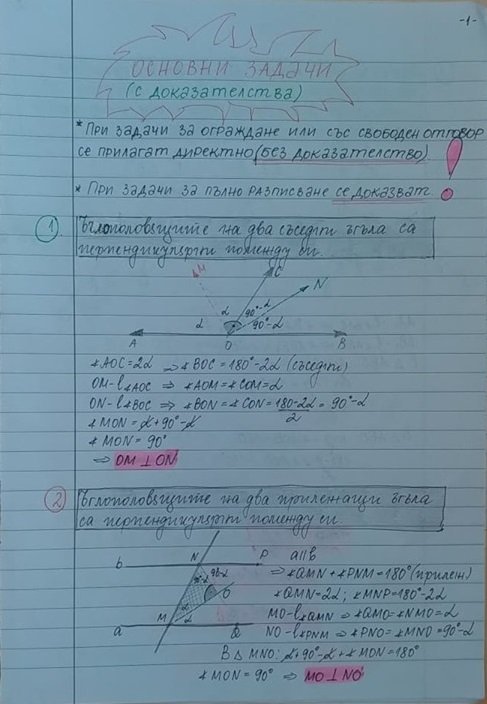 -1-
ОСНОВНИ ЗАДАЧИ
(С ДОКАЗАТЕЛСТВА)
* ПРИ ЗАДАЧИ ЗА ОГРАЖДАНЕ ИЛИ СЪС СВОБОДЕН ОТГОВОР
СЕ ПРИЛАГАТ ДИРЕКТНО (БЕЗ ДОКАЗАТЕЛСТВО). !
* ПРИ ЗАДАЧИ ЗА ПЪЛНО РАЗПИСВАНЕ СЕ ДОКАЗВАТ
1 Ъглополовящите на два съседни ъгъла са
перпендикулярни помежду си.
M C N
α α 90°-α 90°-α
A O B
∢AOC=2α ⇒ ∢BOC=180°-2α (съседни)
OM-l∢AOC ⇒ ∢AOM=∢COM=α
ON-l∢BOC ⇒ ∢BON=∢CON=180-2α/2=90°-α
∢MON=α+90°-α
∢MON=90°
⇒ OM⊥ON
2 Ъглополовящите на два прилежащи ъгъла
са перпендикулярни помежду си
b N P a||b
90-α 90-α O ⇒∢AMN+∢PNM=180°(прилеж)
∢AMN=2α; ∢MNP=180°-2α
α α MO-l∢AMN ⇒ ∢AMO=∢NMO=α
a M Q NO-l∢PNM ⇒ ∢PNO=∢MNO=90°-α
В △MNO: α+90°-α+∢MON=180°
∢MON=90° ⇒ MO⊥NO